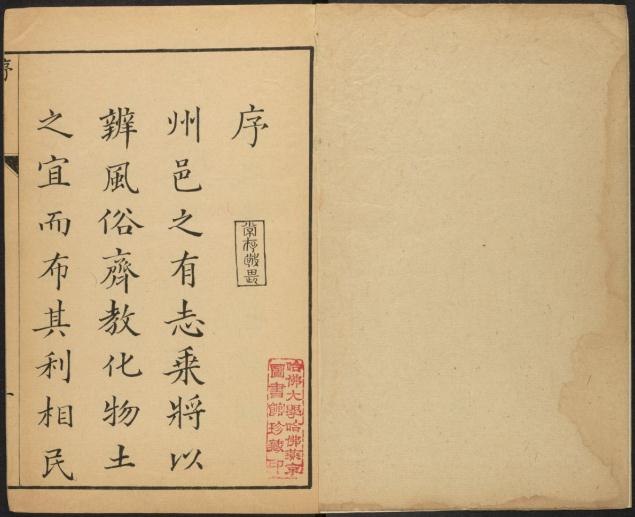 序
州邑之有志乘將以
辨風俗齊教化物土
之宜而布其利相民
序
一
哈佛大學哈佛燕京
圖書館珍藏印